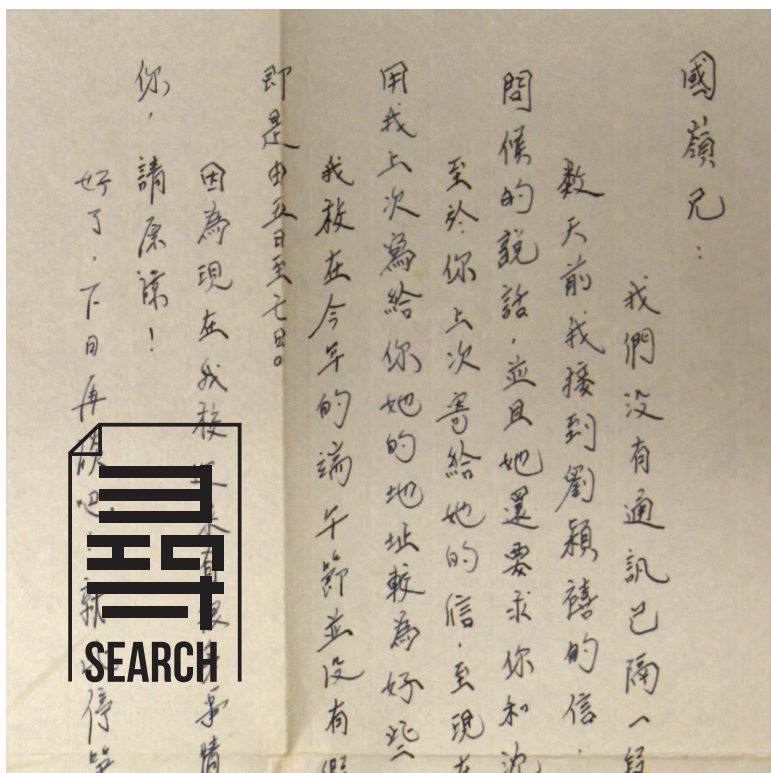 國嶺兄：
我們沒有通訊已隔一段
數天前我接到劉穎禧的信．
問候的說話，並且她還要求你和沈
至於你上次寄給她的信．至現在
用我上次寫給你她的地址較為好些
我校在今年的端午節並沒有
即是由五日至七日。
因為現在我校 事情
你，請原諒！
好了，下日再 吧 就 停筆
SEARCH